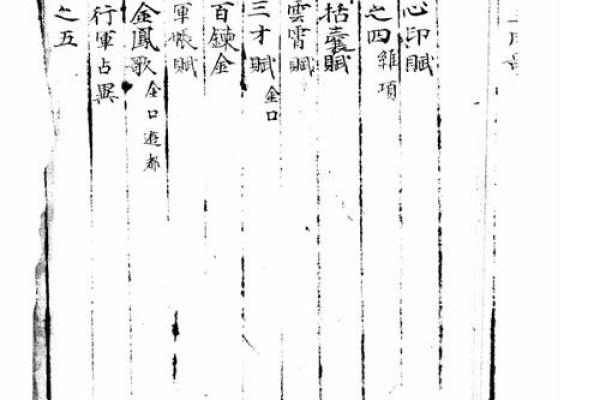 心印賦
之四 雜項
括囊賦
雲霄賦
三才賦 金口
百鍊金
軍帳賦
金鳳歌 金口遊都
行軍占異
之五